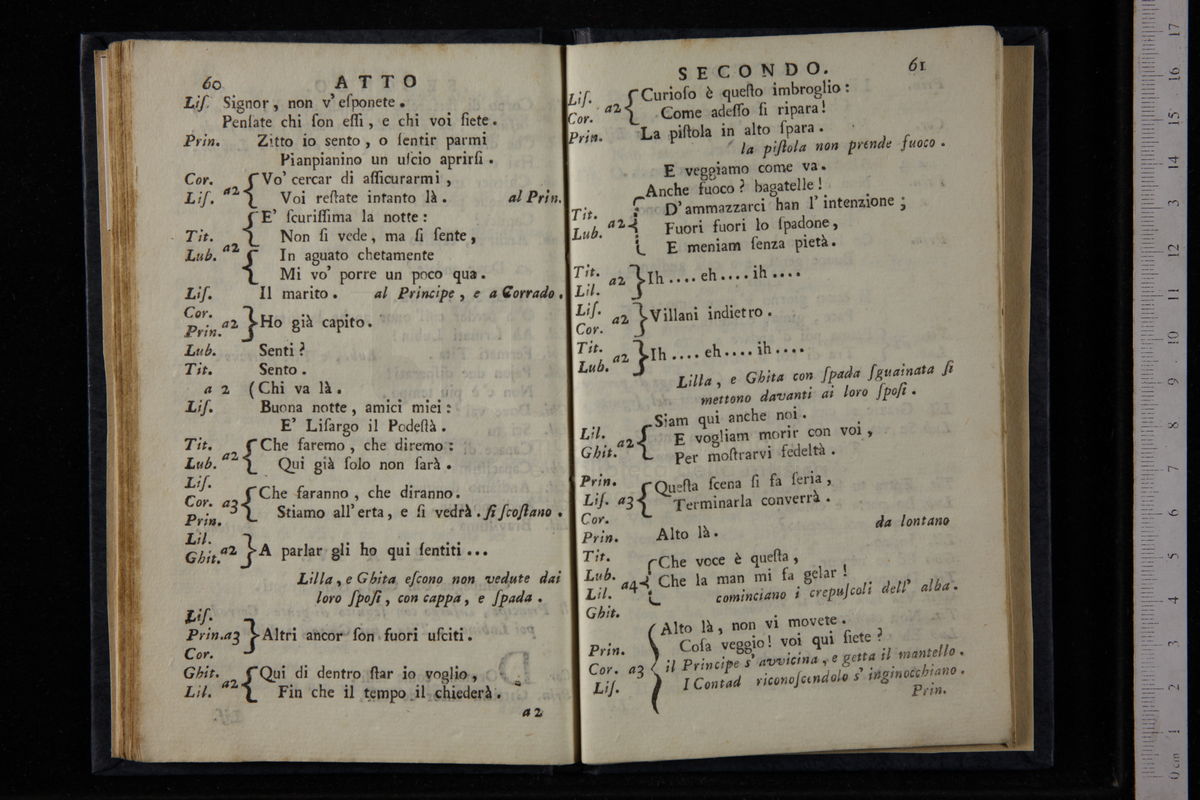 60 ATTO
Liſ. Signor, non v'eſponete.
Penſate chi ſon eſſi, e chi voi ſiete.
Prin. Zitto io sento, o ſentir parmi
Pianpianino un uſcio aprirſi.
Cor. Liſ. a2 { Vo' cercar di aſſicurarmi,
Voi reſtate intanto là. al Prin.
Tit. Lub. a2 { E' ſcuriſſima la notte:
Non ſi vede, ma ſi ſente,
In aguato chetamente
Mi vo' porre un poco qua.
Liſ. Il marito. al Principe, e a Corrado.
Cor. Prin. a2 } Ho già capito.
Lub. Senti?
Tit. Sento.
a 2 (Chi va là.
Liſ. Buona notte, amici miei:
E' Liſargo il Podeſtà.
Tit. Lub. a2 { Che faremo, che diremo:
Qui già ſolo non ſarà.
Liſ. Cor. Prin. a3 { Che faranno, che diranno.
Stiamo all'erta, e ſi vedrà. ſi ſcoſtano.
Lil. Ghit. a2 } A parlar gli ho qui ſentiti...
Lilla, e Ghita eſcono non vedute dai
loro ſpoſi, con cappa, e ſpada.
Liſ. Prin. Cor. a3 } Altri ancor ſon fuori uſciti.
Ghit. Lil. a2 { Qui di dentro ſtar io voglio,
Fin che il tempo il chiederà.
a 2
SECONDO. 61
Liſ. Cor. a2 { Curioſo è queſto imbroglio:
Come adeſſo ſi ripara!
Prin. La piſtola in alto ſpara.
la piſtola non prende fuoco.
E veggiamo come va.
Tit. Lub. a2 { Anche fuoco? bagatelle!
D'ammazzarci han l'intenzione;
Fuori fuori lo ſpadone,
E meniam ſenza pietà.
Tit. Lil. a2 } Ih .... eh .... ih ....
Liſ. Cor. a2 } Villani indietro.
Tit. Lub. a2 } Ih .... eh .... ih ....
Lilla, e Ghita con ſpada ſguainata ſi
mettono davanti ai loro ſpoſi.
Lil. Ghit. a2 { Siam qui anche noi.
E vogliam morir con voi,
Per moſtrarvi fedeltà.
Prin. Liſ. Cor. a3 { Queſta ſcena ſi fa ſeria,
Terminarla converrà.
Prin. Alto là. da lontano
Tit. Lub. Lil. Ghit. a4 { Che voce è queſta,
Che la man mi fa gelar!
cominciano i crepuſcoli dell' alba.
Prin. Cor. Liſ. a3 { Alto là, non vi movete.
Coſa veggio! voi qui ſiete?
il Principe s'avvicina, e getta il mantello.
I Contad riconoſcendolo s'inginocchiano.
Prin.
0 cm 1 2 3 4 5 6 7 8 9 10 11 12 13 14 15 16 17